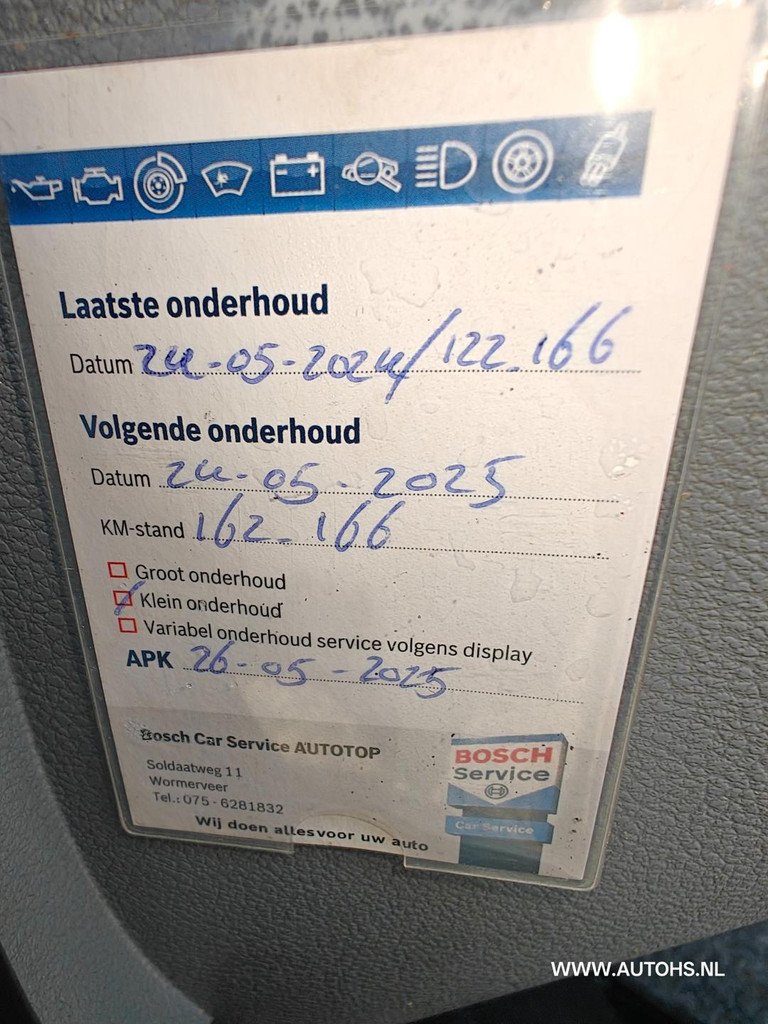 Laatste onderhoud
Datum 24-05-2024/122.166
Volgende onderhoud
Datum 24-05-2025
KM-stand 162.166
Groot onderhoud
Klein onderhoud
Variabel onderhoud service volgens display
APK 26-05-2025
Bosch Car Service AUTOTOP
Soldaatweg 11
Wormerveer
Tel.: 075-6281832
Wij doen alles voor uw auto
BOSCH
Service
Car Service
WWW.AUTOHS.NL